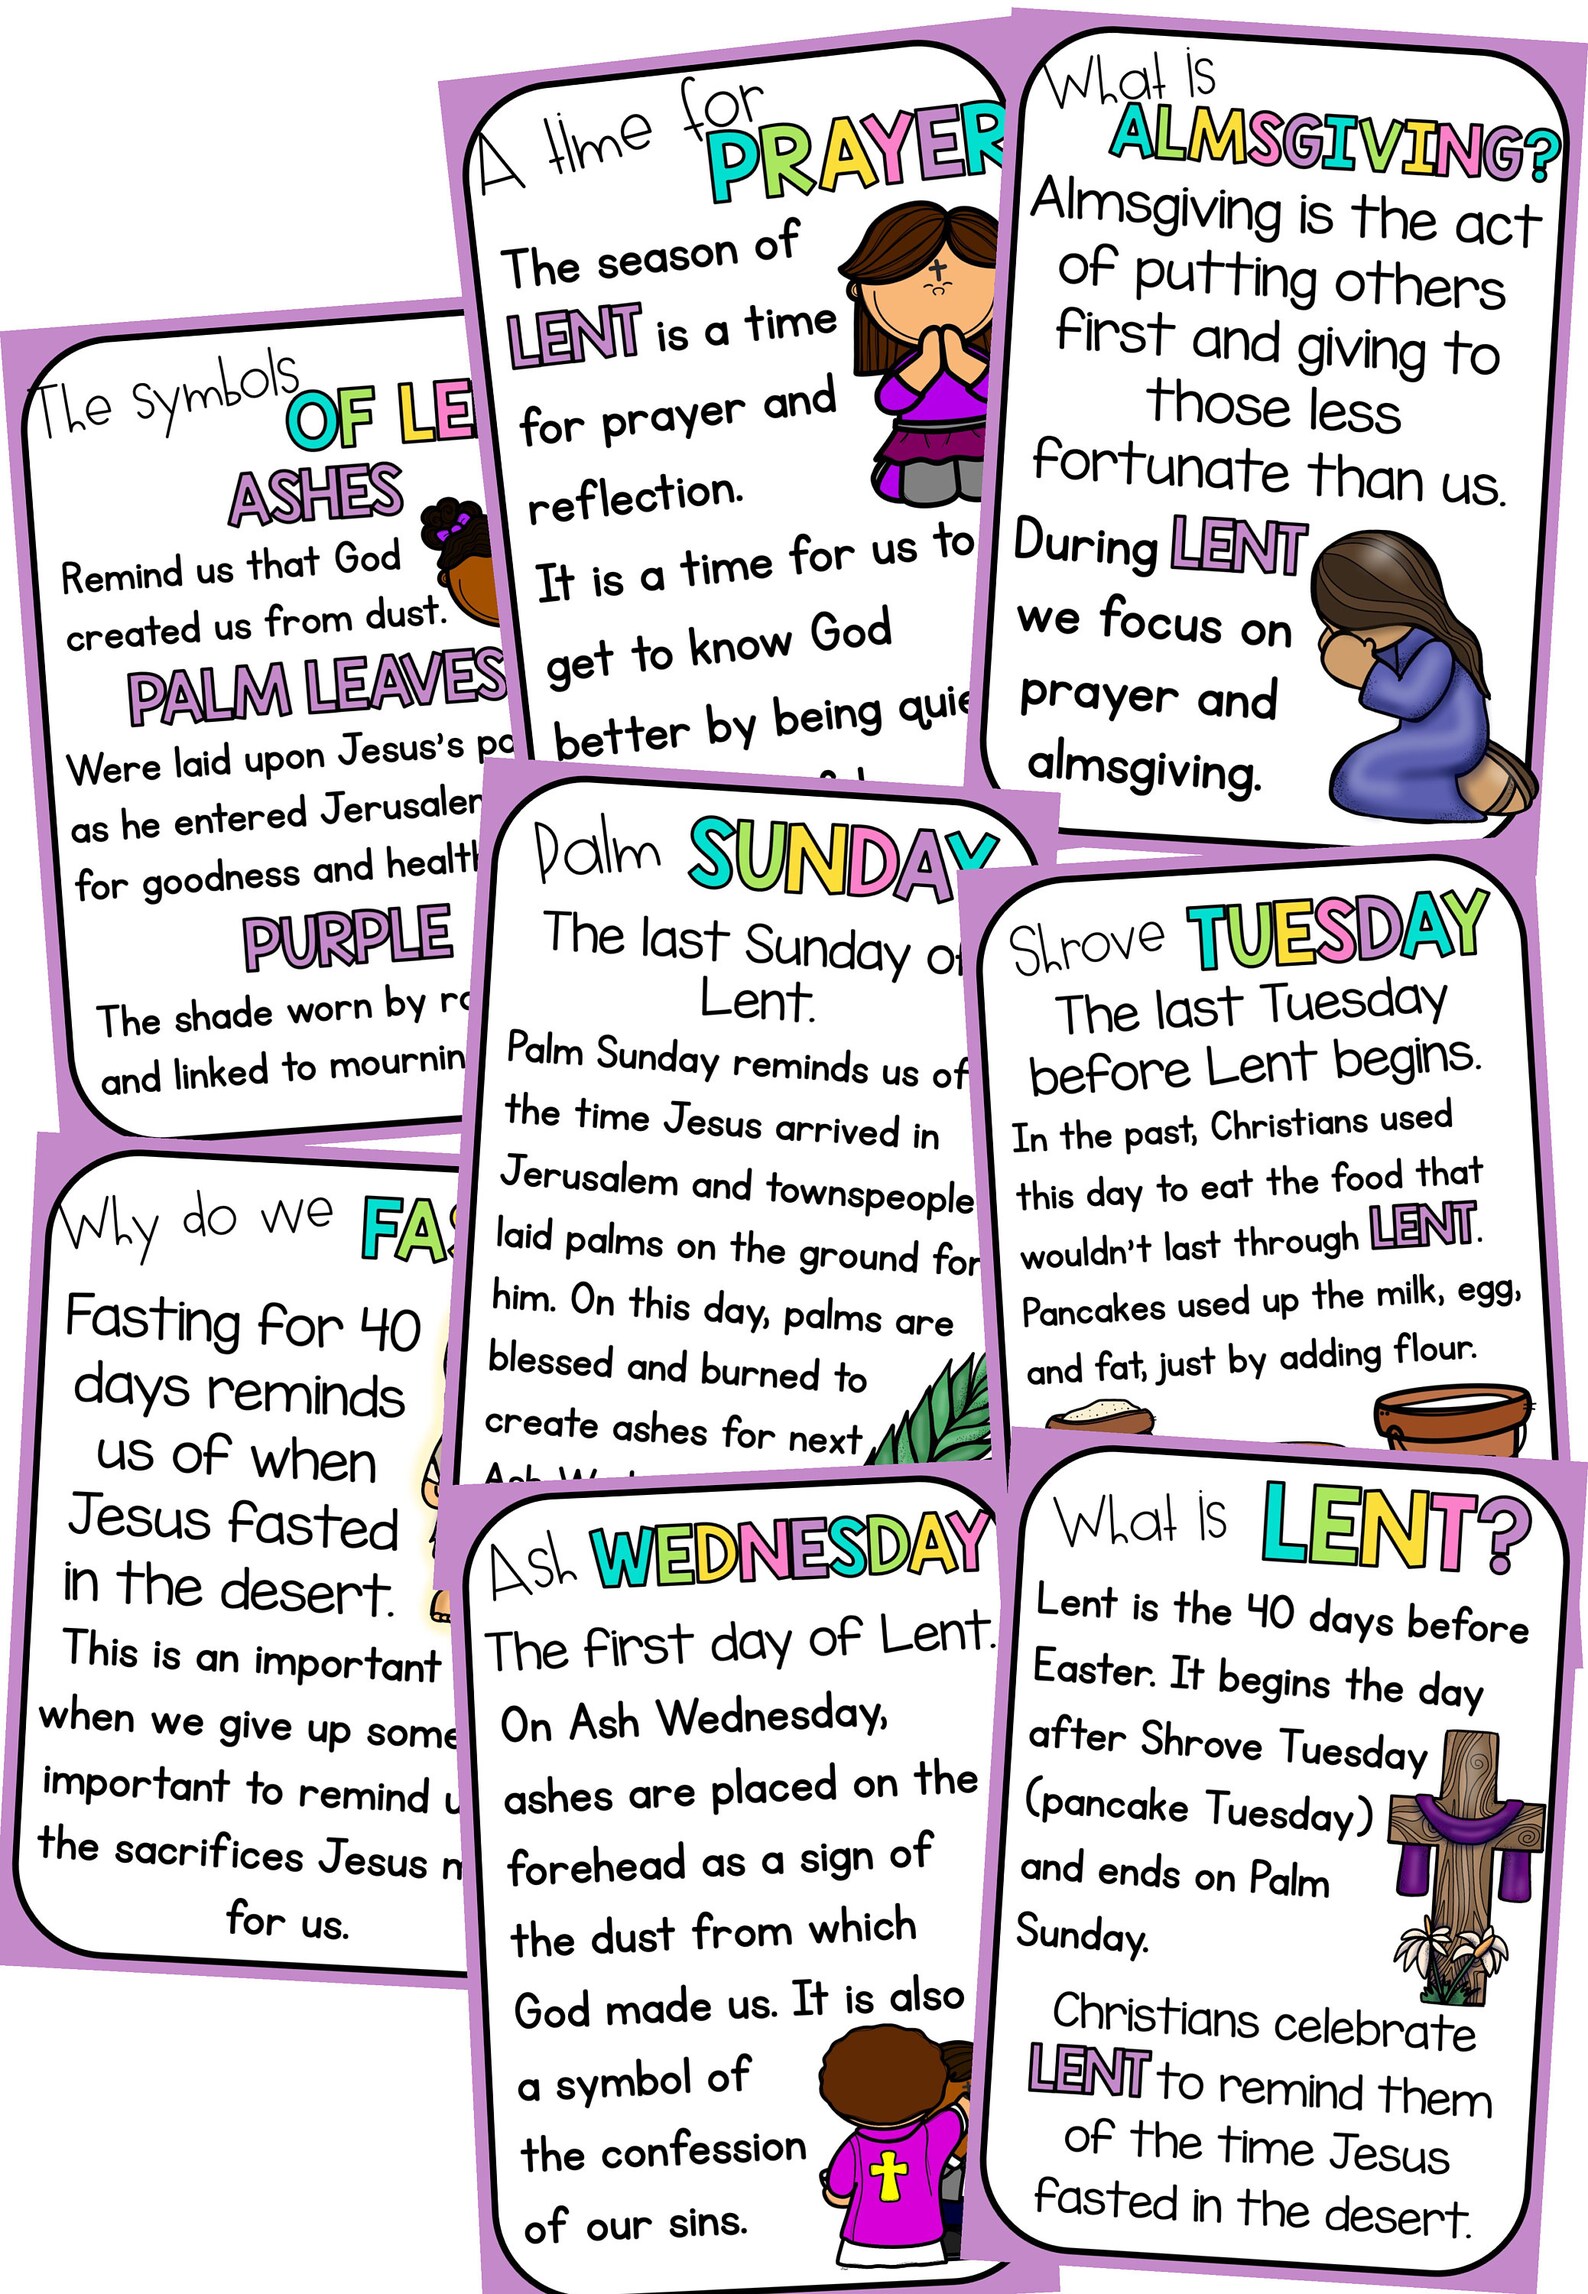 A time for
PRAYER
The season of
LENT is a time
for prayer and
reflection.
It is a time for us to
get to know God
better by being
What is
ALMSGIVING?
Almsgiving is the act
of putting others
first and giving to
those less
fortunate than us.
During LENT
we focus on
prayer and
almsgiving.
The symbols
OF
ASHES
Remind us that God
created us from dust.
PALM LEAVES
Were laid upon Jesus's
as he entered
for goodness and
PURPLE
The shade worn by
and linked to
Palm SUNDAY
The last Sunday of
Lent.
Palm Sunday reminds us of
the time Jesus arrived in
Jerusalem and townspeople
laid palms on the ground for
him. On this day, palms are
blessed and burned to
create ashes for next
Shrove TUESDAY
The last Tuesday
before Lent begins.
In the past, Christians used
this day to eat the food that
wouldn't last through LENT.
Pancakes used up the milk, egg,
and fat, just by adding flour.
Why do we
Fasting for 40
days reminds
us of when
Jesus fasted
in the desert.
This is an important
when we give up
important to remind
the sacrifices Jesus
for us.
Ash WEDNESDAY
The first day of Lent.
On Ash Wednesday,
ashes are placed on the
forehead as a sign of
the dust from which
God made us. It is also
a symbol of
the confession
of our sins.
What is LENT?
Lent is the 40 days before
Easter. It begins the day
after Shrove Tuesday
(pancake Tuesday)
and ends on Palm
Sunday.
Christians celebrate
LENT to remind them
of the time Jesus
fasted in the desert.